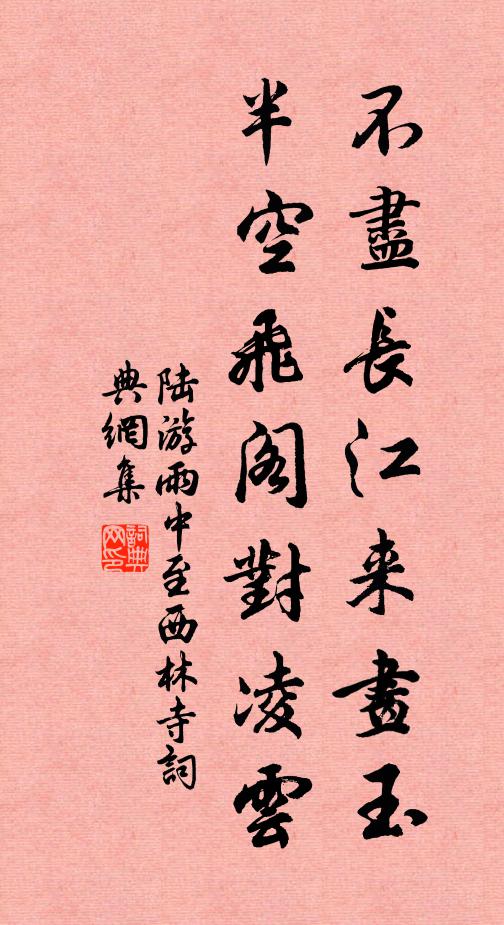 不盡長江来畫玉
半空飛阁對凌雲
陆游雨中至西林寺詞
典網集
詞典网印